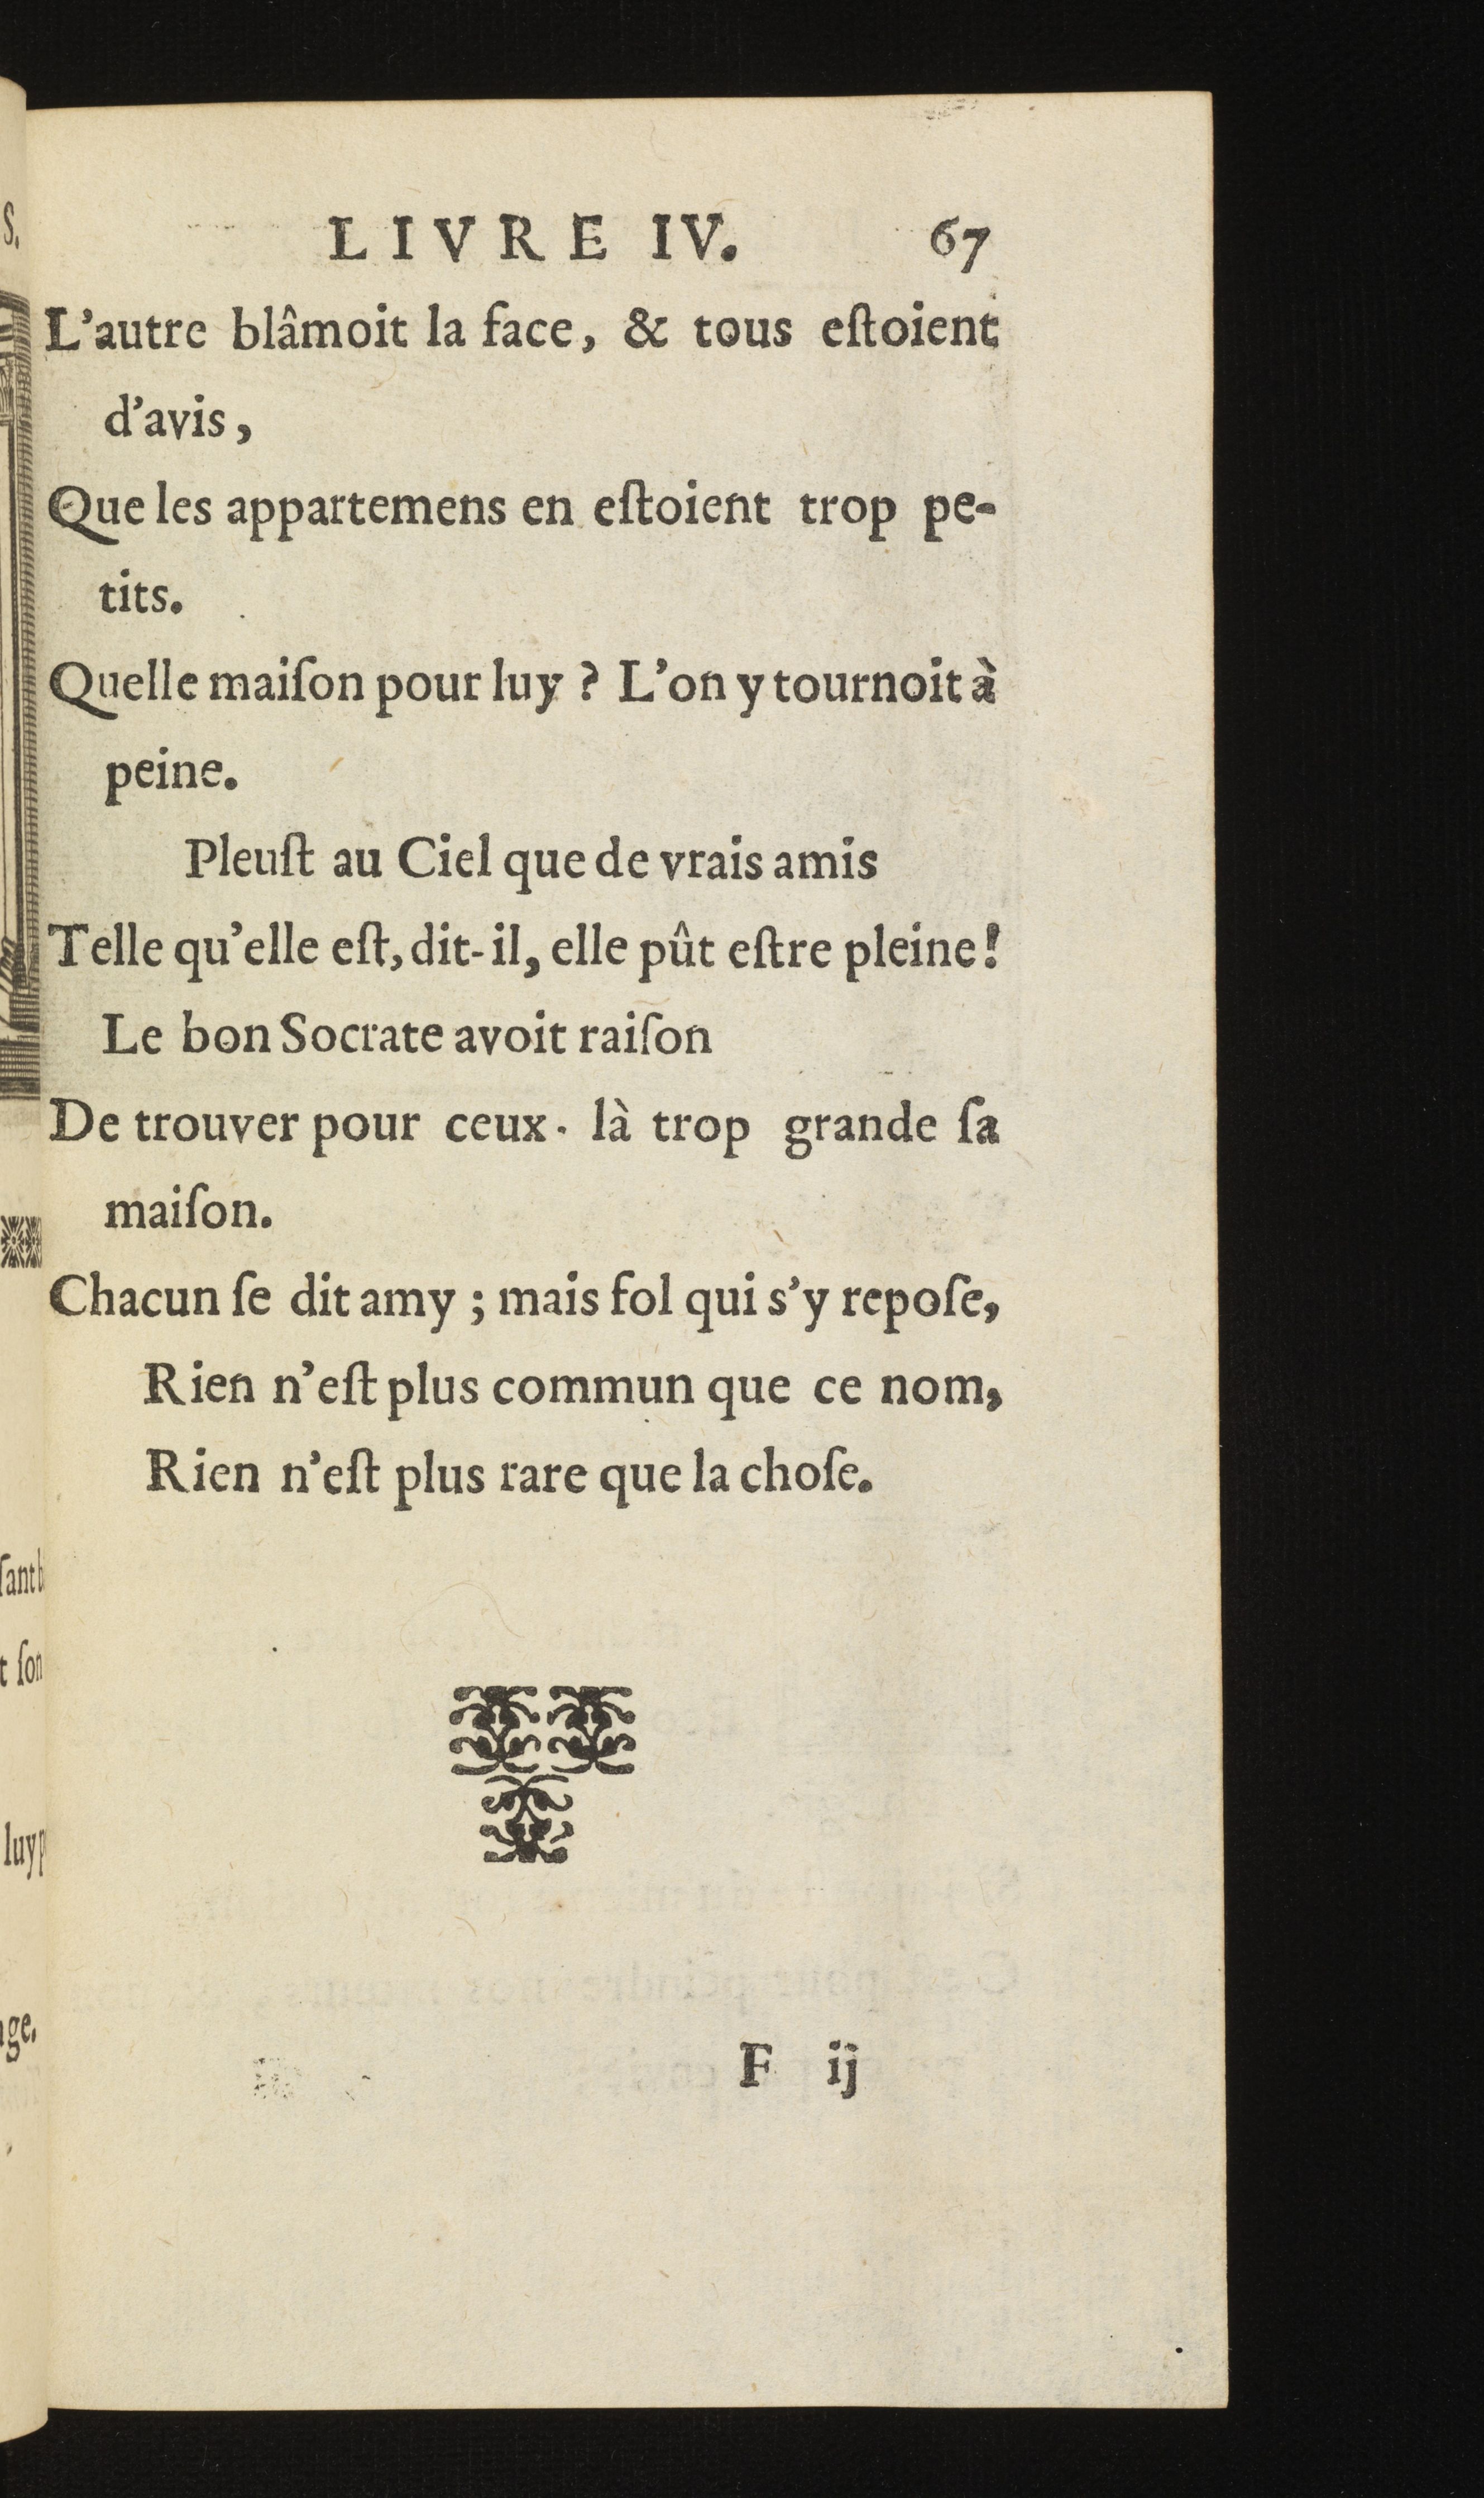 LIVRE IV. 67
L'autre blâmoit la face, & tous eſtoient
d'avis,
Que les appartemens en eſtoient trop pe-
tits.
Quelle maiſon pour luy ? L'on y tournoit à
peine.
Pleuſt au Ciel que de vrais amis
Telle qu'elle eſt, dit-il, elle pût eſtre pleine!
Le bon Socrate avoit raiſon
De trouver pour ceux-là trop grande ſa
maiſon.
Chacun ſe dit amy ; mais fol qui s'y repoſe,
Rien n'eſt plus commun que ce nom,
Rien n'eſt plus rare que la choſe.
F ij